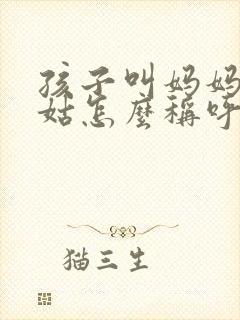 孩子叫妈妈
姑怎麼稱呼
猫三生